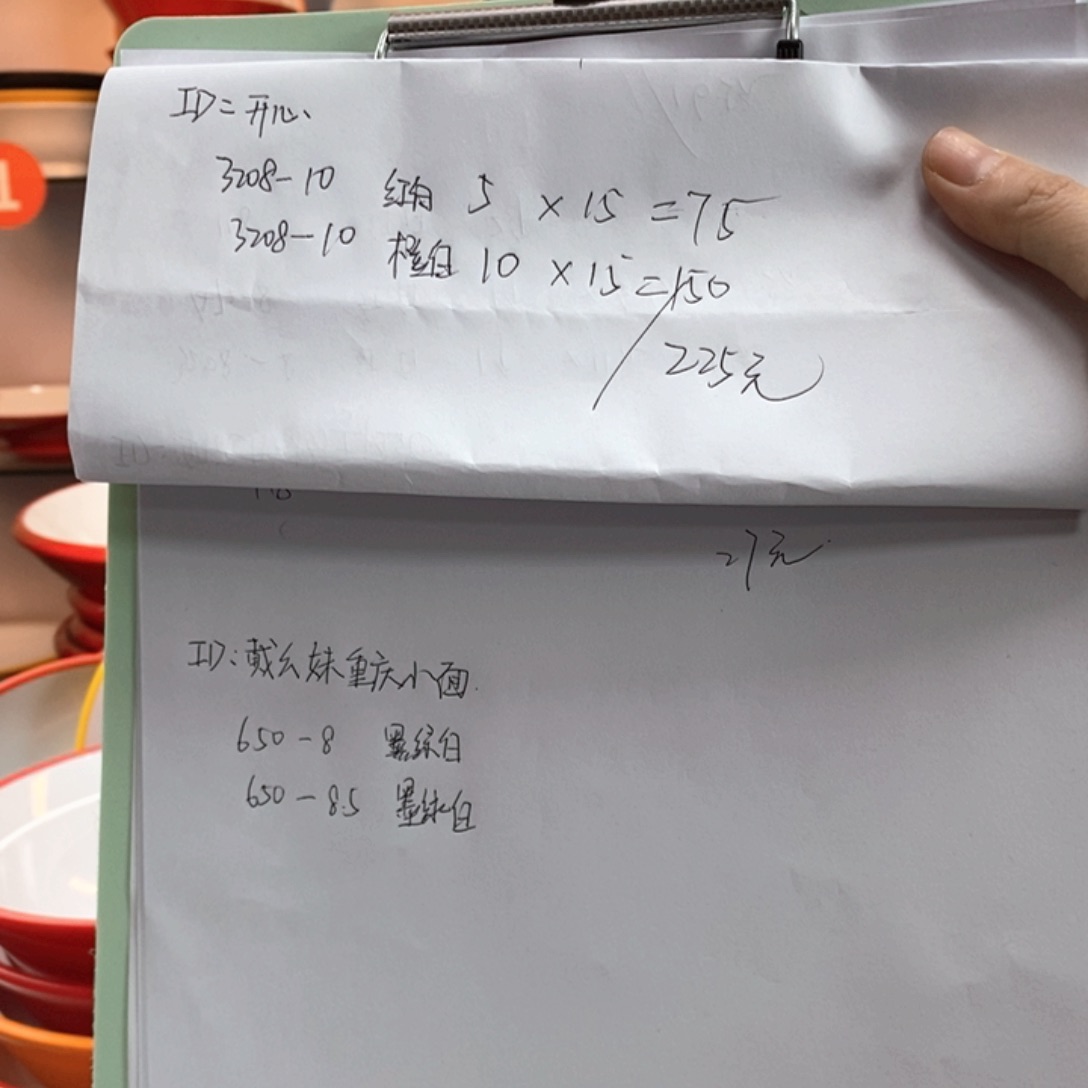 ID=开心
3208-10 红白 5 ×15 =75
3208-10 橙白 10 ×15=150
225元
27元
ID:戴幺妹重庆小面.
650-8 墨绿白
650-8.5 墨绿白
1